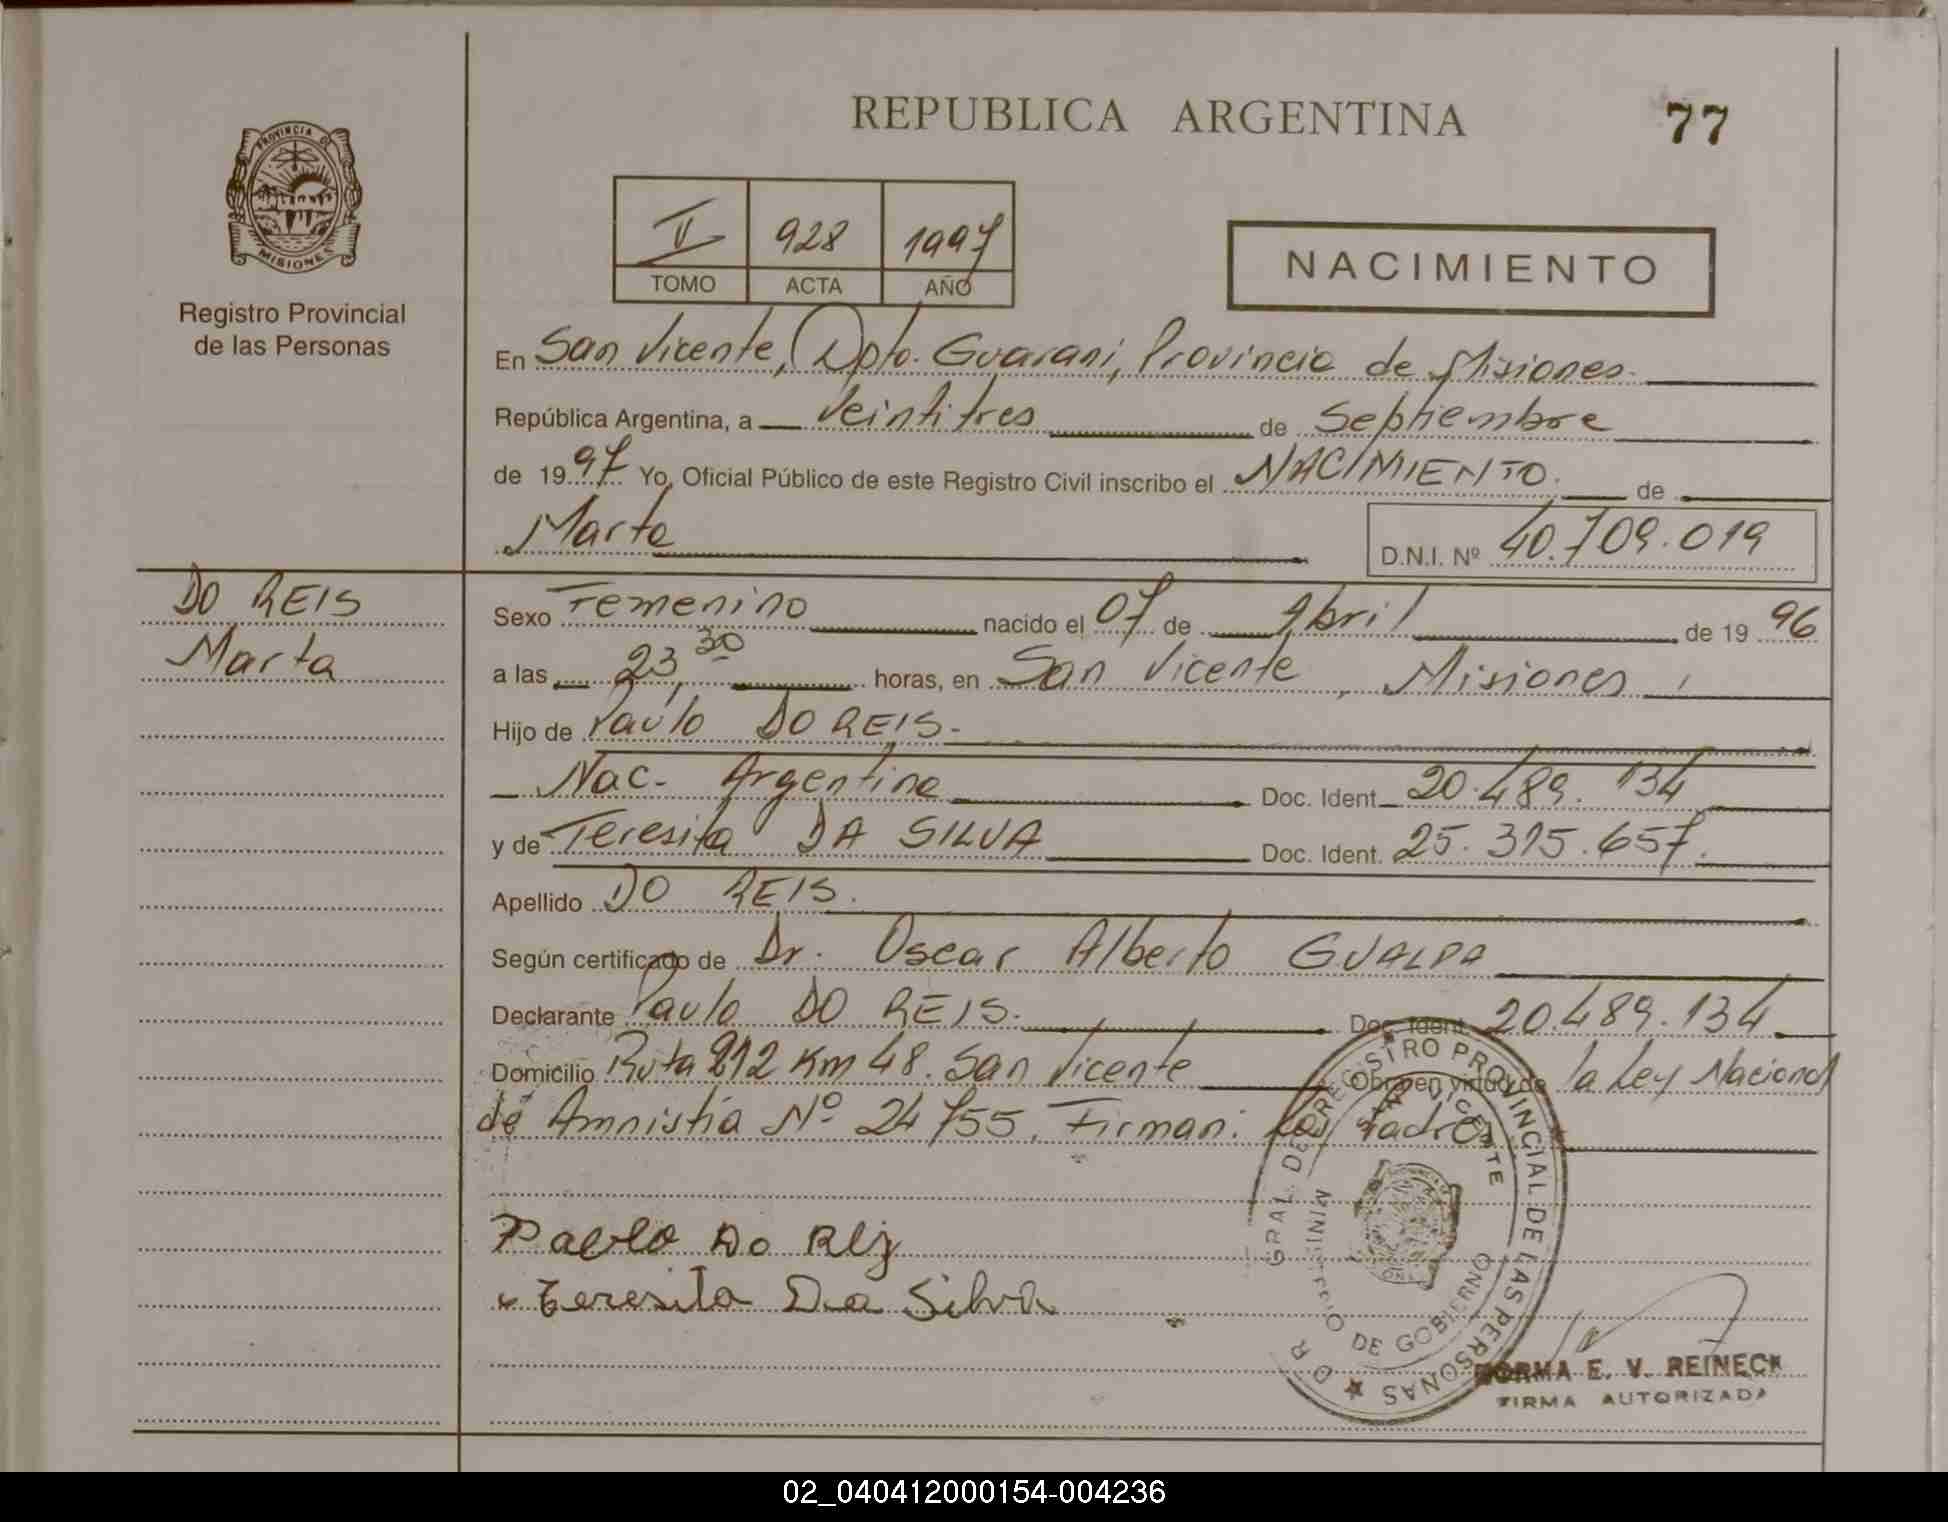 REPUBLICA ARGENTINA
77
PROVINCIA DE
MISIONES
Registro Provincial
de las Personas
II 928 1997
TOMO ACTA AÑO
NACIMIENTO
En San Vicente, Dpto. Guarani, Provincia de Misiones.
República Argentina, a Veintitres de Septiembre
de 1997 Yo, Oficial Público de este Registro Civil inscribo el NACIMIENTO. de
Marta D.N.I. Nº 40.709.019
DO REIS
Marta
Sexo Femenino nacido el 07 de Abril de 1996
a las 23,30 horas, en San Vicente, Misiones,
Hijo de Paulo DO REIS.-
Nac. Argentina Doc. Ident. 20.489.134
y de Teresita DA SILVA Doc. Ident. 25.315.657.
Apellido DO REIS.
Según certificado de Dr. Oscar Alberto GUALPA
Declarante Paulo DO REIS. Doc. Ident. 20.489.134
Domicilio Ruta 212 Km 48. San Vicente Obra en virtud de la Ley Nacional
de Amnistia Nº 24755. Firman: Los Padres
Pablo Do Reis
Teresita Da Silva
GRAL. DE REGISTRO PROVINCIAL DE LAS PERSONAS ★ DIR
SAN VICENTE
MINISTERIO DE GOBIERNO
NORMA E. V. REINECK
FIRMA AUTORIZADA
02_040412000154-004236